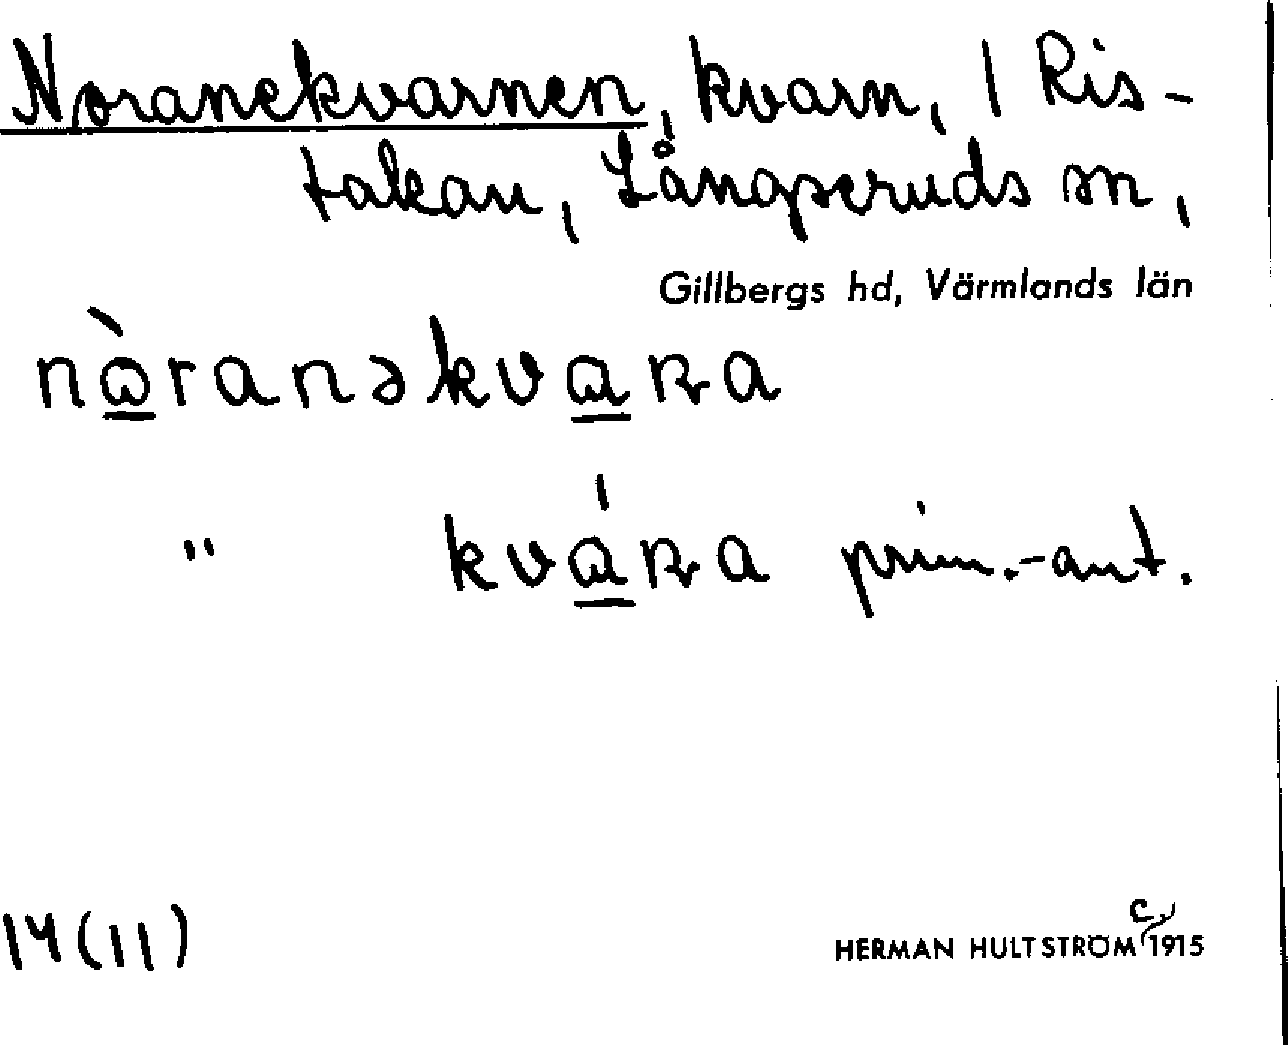 Noranekvarnen, kvarn, 1 Ris-
takan, Långseruds sn,
Gillbergs hd, Värmlands län
nὼranəkvꞷꞃa
" kvꞷ́ꞃa prim.-ant.
14(11)
HERMAN HULTSTRÖM c. 1915